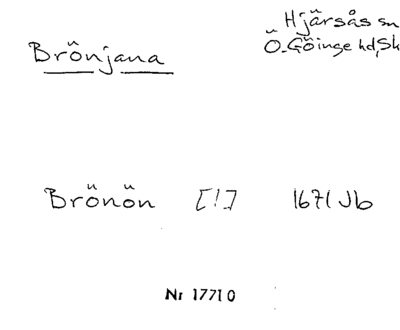 Hjärsås sn
Brönjana Ö. Göinge hd, Sk
Brönön [!] 1671 Jb
Nr 17710